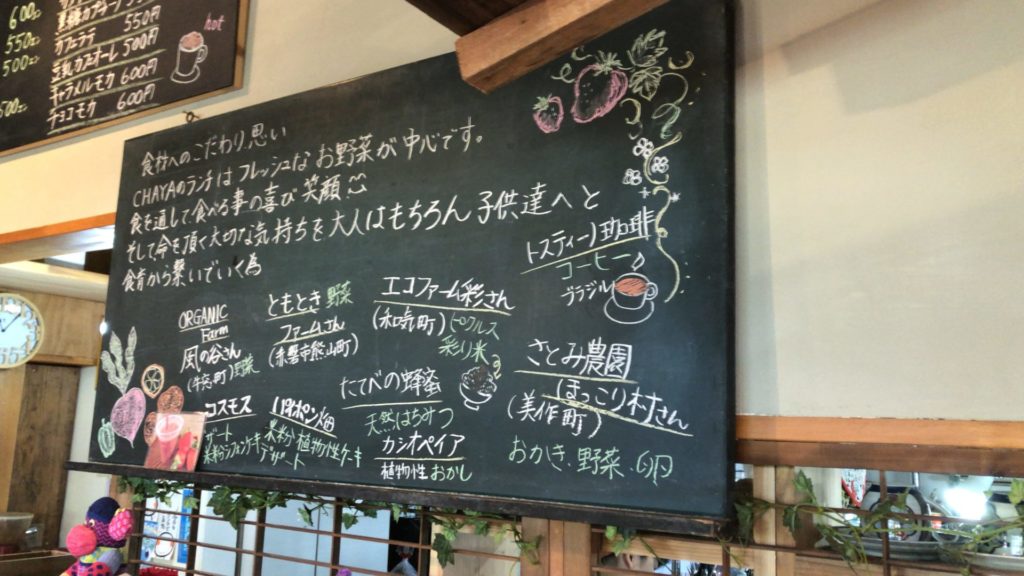 600
550
500
カフェラテ 550円
豆乳カフェオーレ 500円
キャラメルモカ 600円
チョコモカ 600円
hot
食材へのこだわり、思い
CHAYAのランチはフレッシュなお野菜が中心です。
食を通して食べる事の喜び 笑顔
そして命を頂く大切な気持ちを大人はもちろん子供達へと
食育から繋いでいく為
トスティーノ珈琲
コーヒー
ブラジル
ORGANIC
Farm
風の谷さん
野菜
ともとき 野菜
ファームさん
エコファーム彩さん
(和気町)
ピクルス
彩り米
たてべの蜂蜜
天然はちみつ
カシオペイア
植物性おかし
さとみ農園
ほっこり村さん
(美作町)
おかき、野菜、卵
コスモス
パキポン畑
植物性ケーキ